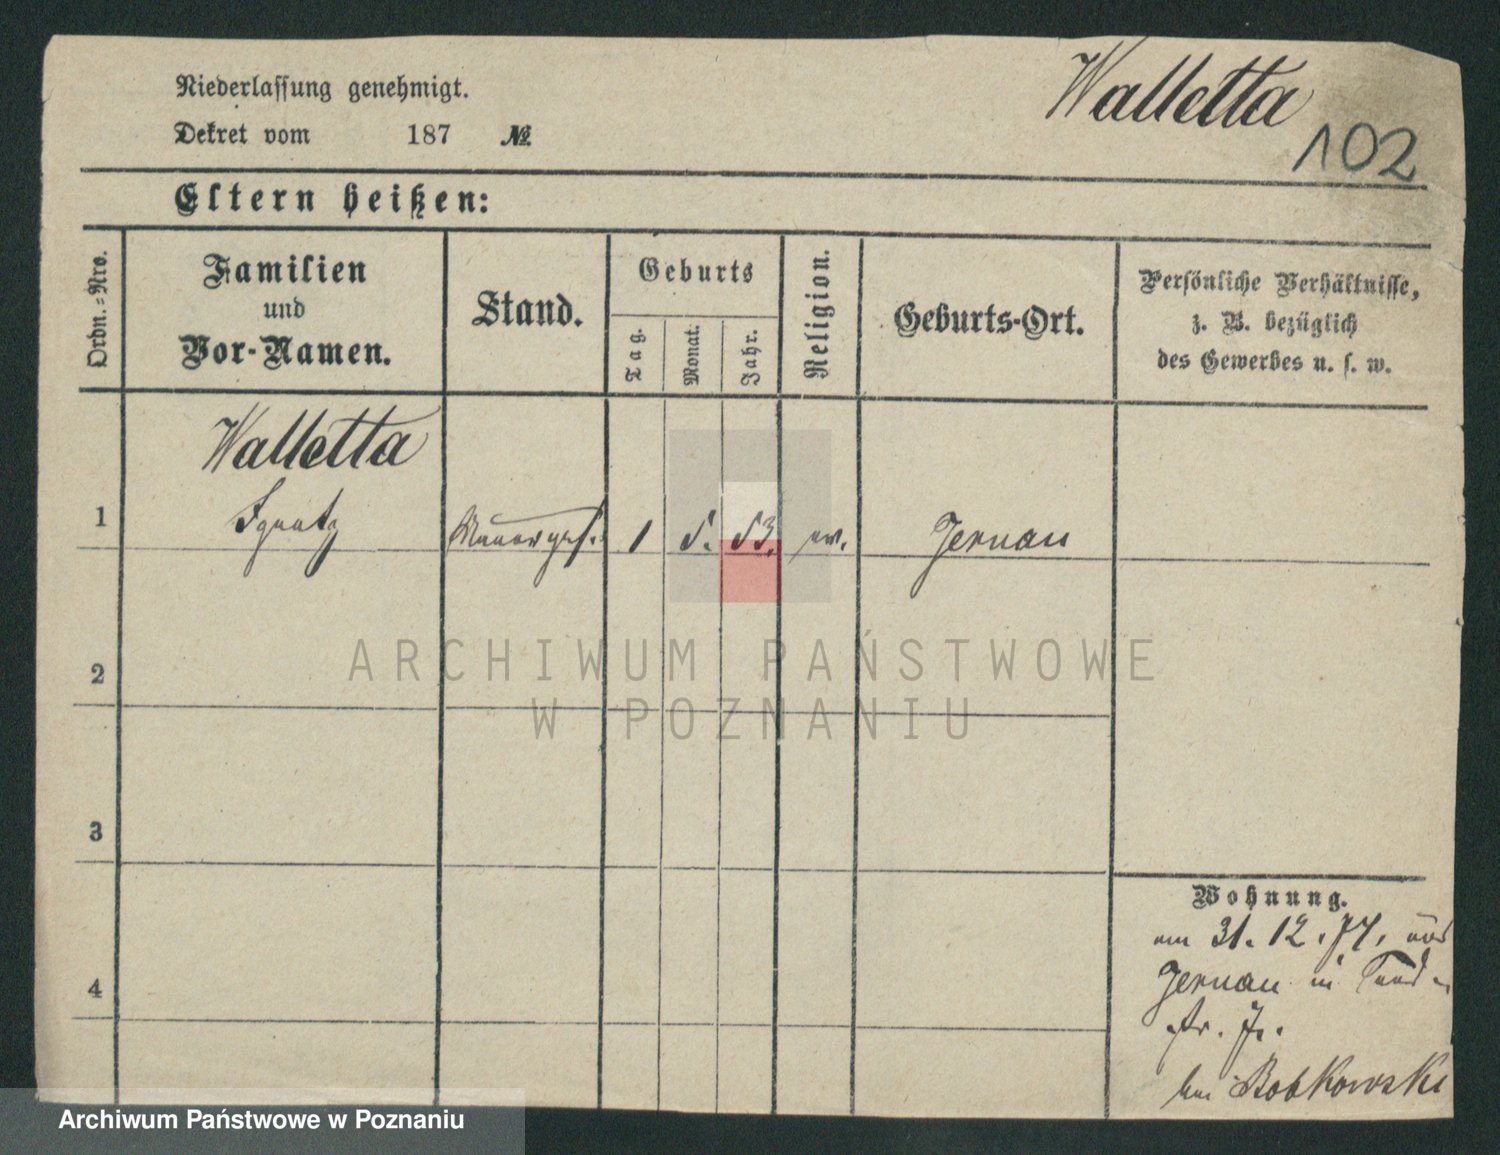 Niederlassung genehmigt.
Dekret vom 187 №
Walletta
102
Eltern heißen:
Ordn.-Nro.
Familien
und
Vor-Namen.
Stand.
Geburts
Tag.
Monat.
Jahr.
Religion.
Geburts-Ort.
Persönliche Verhältnisse,
z. B. bezüglich
des Gewerbes u. s. w.
Walletta
1 Ignatz Maurerges. 1 5. 53. ev. Jernau
ARCHIWUM PAŃSTWOWE
W POZNANIU
2
3
4
Wohnung.
am 31. 12. 77. aus
Jernau in
str. 7.
bei Bobkowski
Archiwum Państwowe w Poznaniu